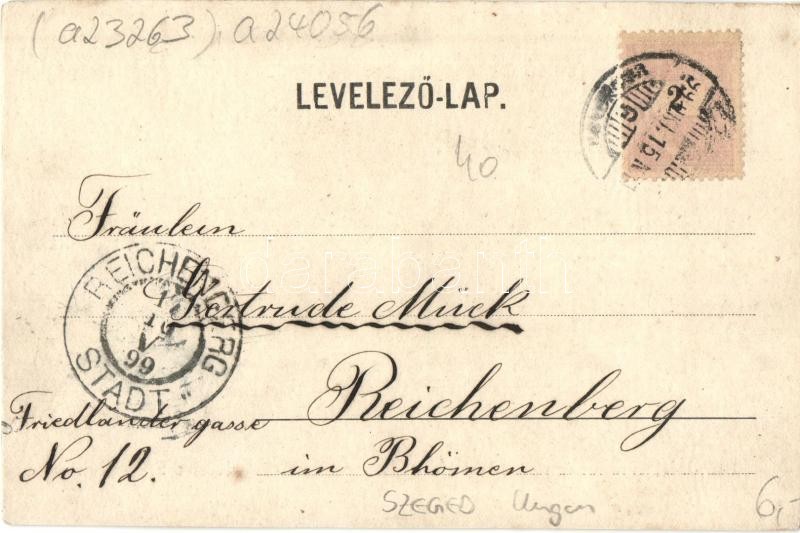 (a23263) a24056
LEVELEZŐ-LAP.
40
Fräulein
Gertrude Mück
REICHENBERG
STADT
V
99
Reichenberg
Friedlander gasse
No. 12.
im Bhömen
SZEGED Ungarn
6,-
darabanth